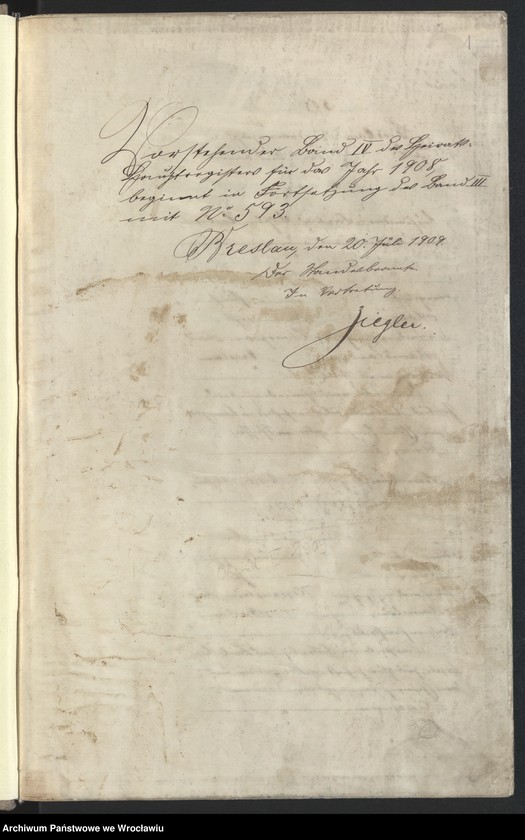 1
Vorstehender Band IV des Heirats-
Hauptregisters für das Jahr 1908,
beginnt in Fortsetzung des Band III
mit No 593.
Breslau, den 20. Juli 1908.
Der Standesbeamte.
In Vertretung
Ziegler.
Archiwum Państwowe we Wrocławiu